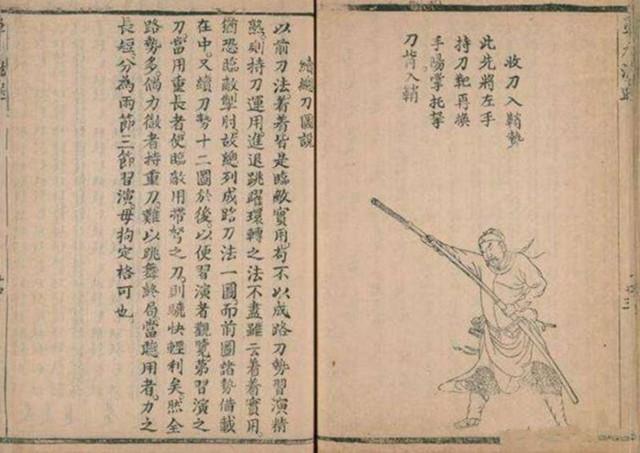 收刀入鞘勢
此先將左手
持刀靶再換
手陽掌托拏
刀背入鞘
續總刀圖說
以前刀法着着皆是臨敵實用苟不以成路刀勢習演精
熟則持刀運用進退跳躍環轉之法不盡雖云着着實用
猶恐臨敵掣肘故總列成路刀法一圖而前圖諸勢備載
在中又續刀勢十二圖於後以便習演者觀覽第習演之
刀當用重長者便臨敵用帶弩之刀則驍快輕利矣然全
路勢多偶力微者持重刀難以跳舞終局當聽用者力之
長短分為兩節三節習演毋拘定格可也